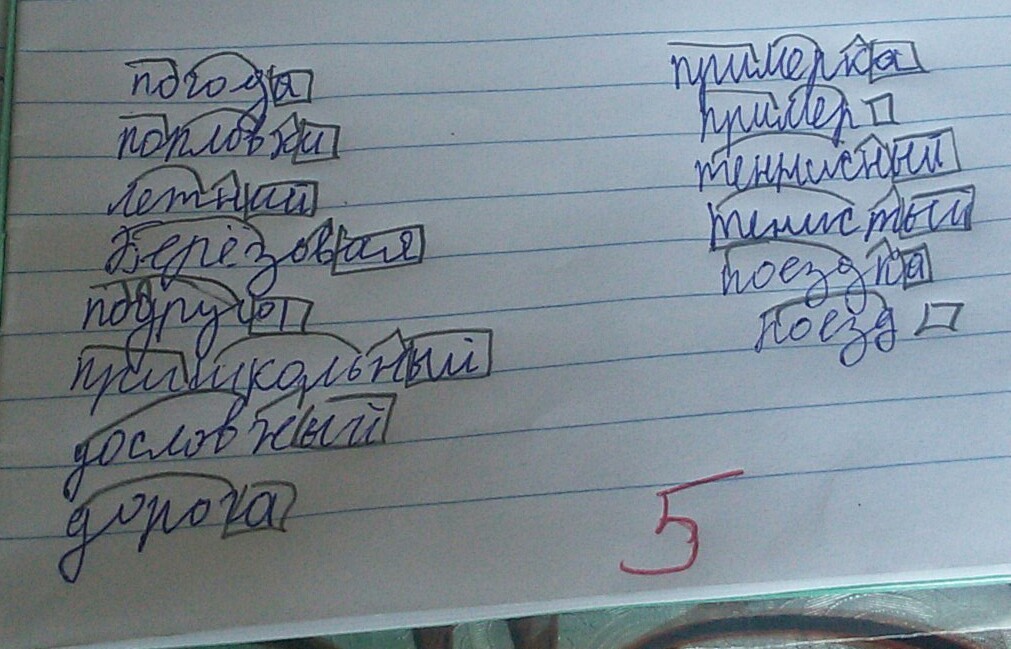 погода
поплавки
летний
берёзовая
подруга
пришкольный
дословный
дорога
примерка
пример
теннисный
тенистый
поездка
поезд
5